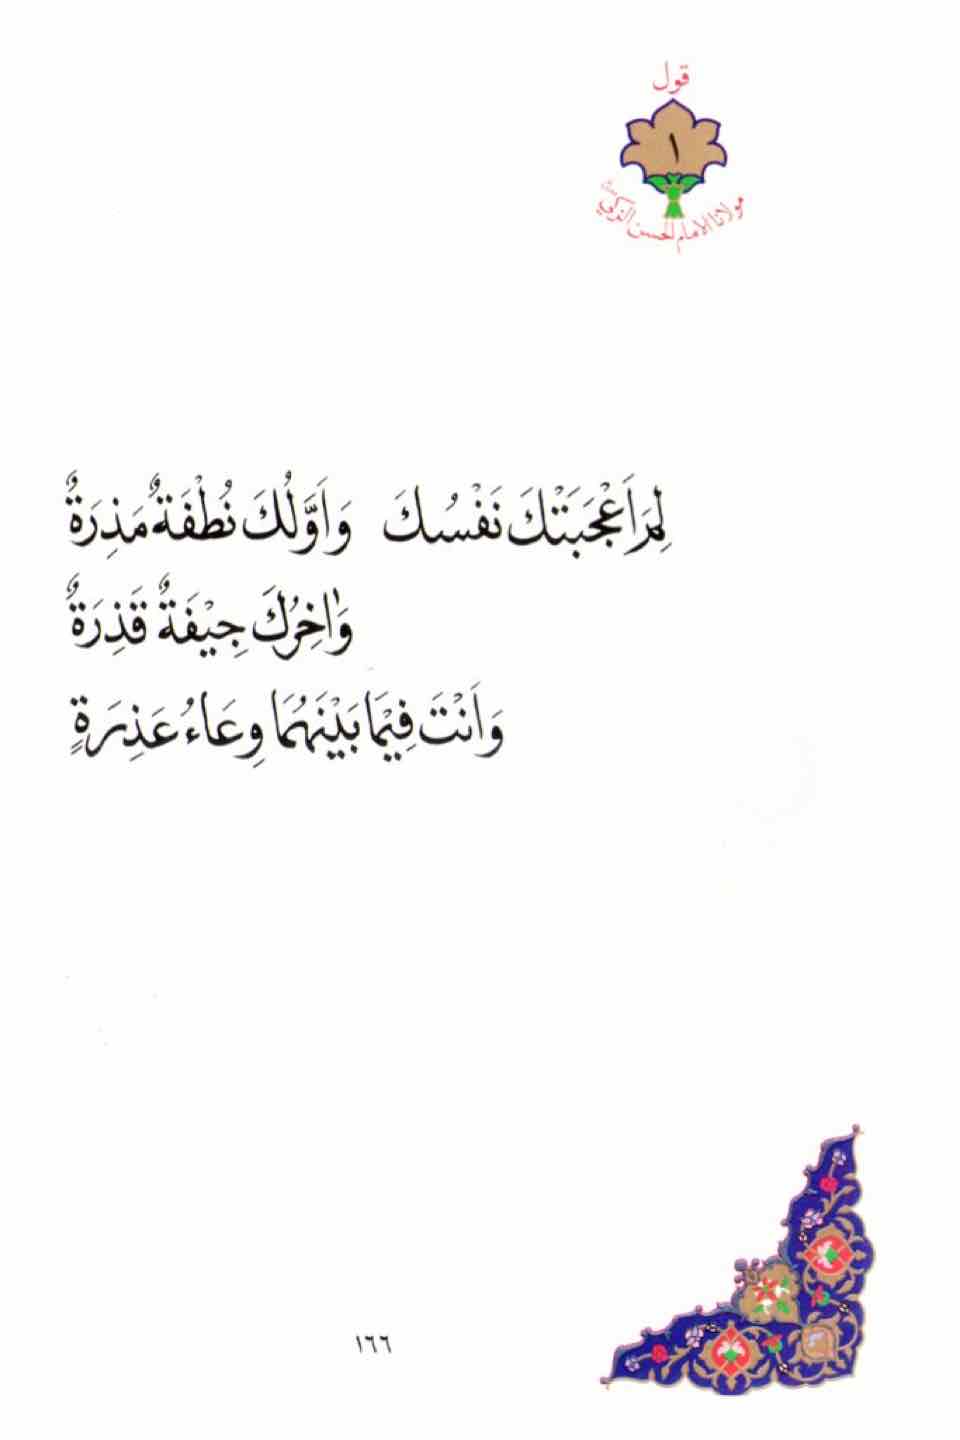 قول
١
مولانا الامام الحسن الزكي
لِمَ اَعْجَبَتْكَ نَفْسُكَ وَاَوَّلُكَ نُطْفَةٌ مَذِرَةٌ
وَاٰخِرُكَ جِيْفَةٌ قَذِرَةٌ
وَاَنْتَ فِيْمَا بَيْنَهُمَا وِعَاءُ عَذِرَةٍ
١٦٦